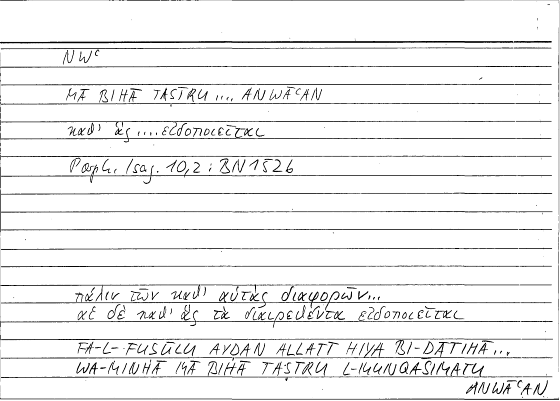 NWᶜ
MĀ BIHĀ TAṢĪRU .... ANWĀᶜAN
καθ' ἃς .... εἰδοποιεῖται
Porph. Isag. 10,2 : BN 1526
πάλιν τῶν καθ' αὑτὰς διαφορῶν...
αἱ δὲ καθ' ἃς τὰ διαιρεθέντα εἰδοποιεῖται
FA-L-FUṢŪLU AYḌAN ALLATĪ HIYA BI-ḎĀTIHĀ...
WA-MINHĀ MĀ BIHĀ TAṢĪRU L-MUNQASIMATU
ANWĀᶜAN